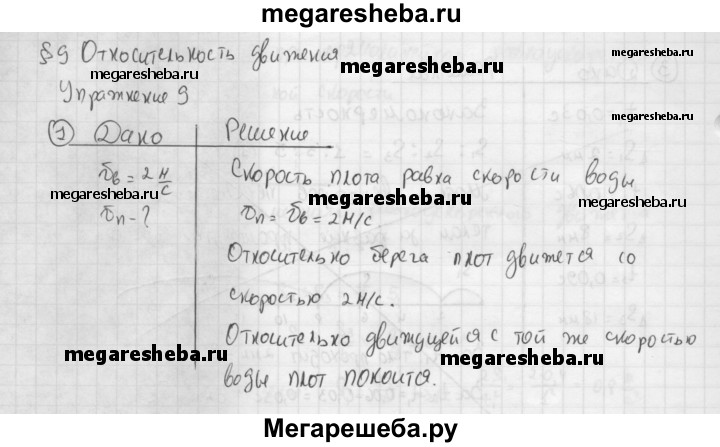 megaresheba.ru
§9 Относительность движения
megaresheba.ru megaresheba.ru
Упражнение 9
megaresheba.ru
① Дано Решение
megaresheba.ru
υв = 2 м/с Скорость плота равна скорости воды
megaresheba.ru megaresheba.ru
υп - ? υп = υв = 2 м/с
Относительно берега плот движется со
скоростью 2 м/с.
Относительно движущейся с той же скоростью
megaresheba.ru megaresheba.ru
воды плот покоится.
Мегарешеба.ру